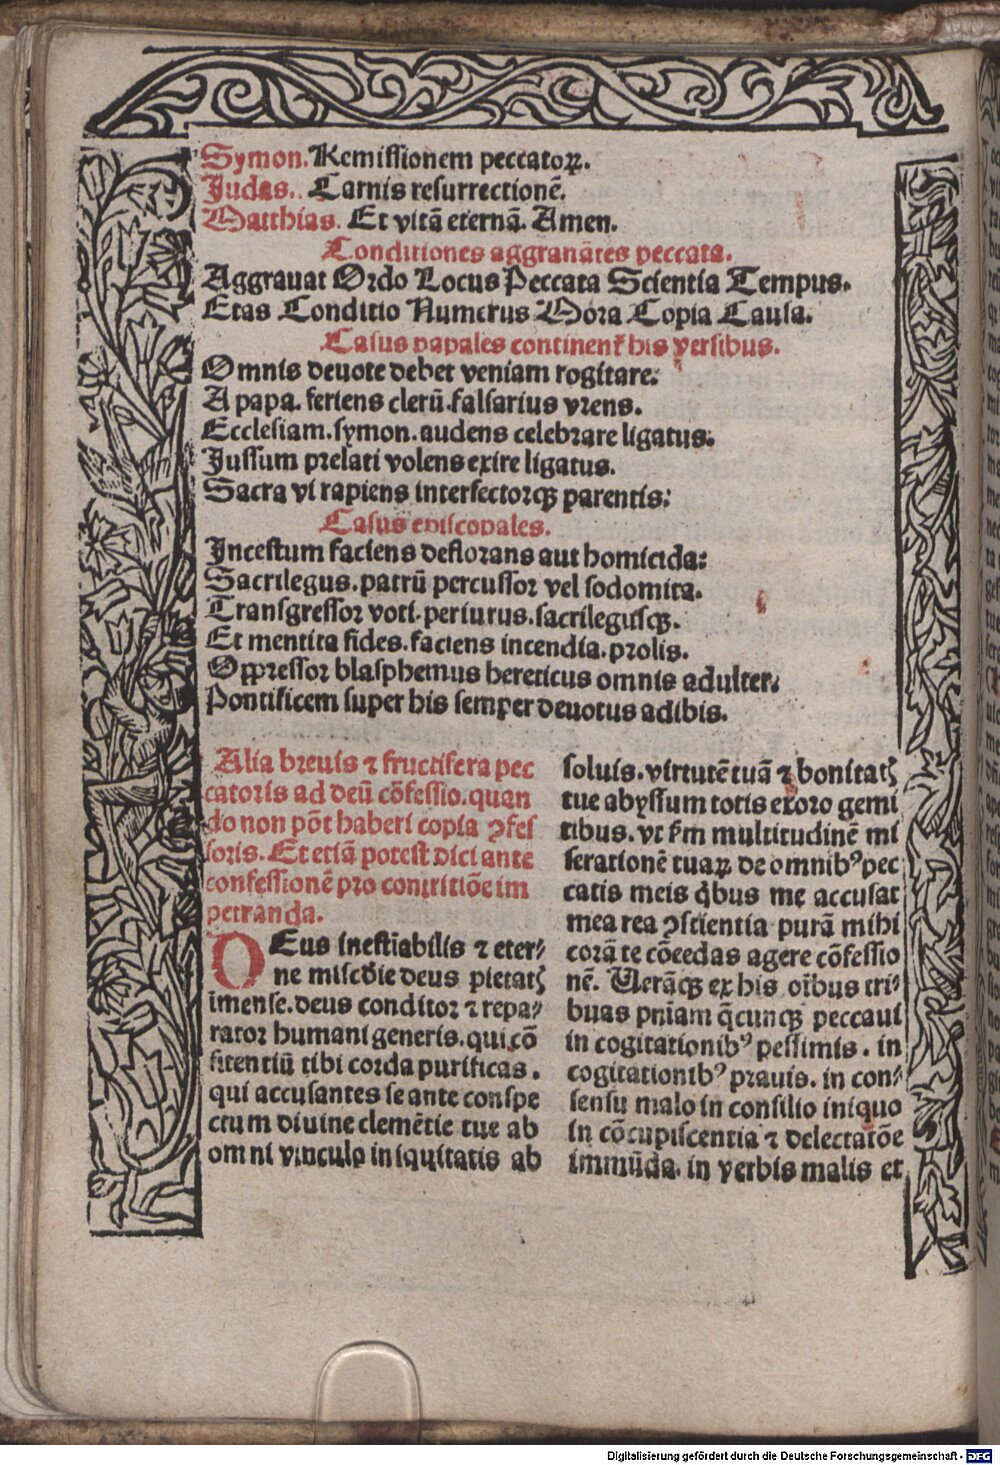 Symon. Remissionem peccatoꝝ.
Judas. Carnis resurrectionē.
Matthias. Et vitā eternā. Amen.
Conditiones aggrauātes peccata.
Aggrauat Ordo Locus Peccata Scientia Tempus.
Etas Conditio Numerus Mora Copia Causa.
Casus papales continent̄ his versibus.
Omnis deuote debet veniam rogitare:
A papa. feriens clerū. falsarius vrens.
Ecclesiam. symon. audens celebrare ligatus:
Jussum prelati volens exire ligatus.
Sacra vi rapiens interfectorqꝫ parentis:
Casus episcopales.
Incestum faciens deflorans aut homicida:
Sacrilegus. patrū percussor vel sodomita.
Transgressor voti. periurus. sacrilegusqꝫ.
Et mentita fides. faciens incendia. prolis.
Oppressor blasphemus hereticus omnis adulter:
Pontificem super his semper deuotus adibis.
Alia breuis ⁊ fructifera pec
catoris ad deū cōfessio. quan
do non pōt haberi copia ꝯfes
soris. Et etiā potest dici ante
confessionē pro contritiōe im
petranda.
DEus inestīabilis ⁊ eter⸗
ne miscd̓ie deus pietatꝭ
īmense. deus conditor ⁊ repa⸗
rator humani generis. qui cō
fitentiū tibi corda purificas.
qui accusantes se ante conspe
ctum diuine clemētie tue ab
omni vinculo iniquitatis ab
soluis. virtutē tuā ⁊ bonitatꝭ
tue abyssum totis exoro gemi
tibus. vt ẜm multitudinē mi
serationē tuaꝝ de omnibꝰ pec
catis meis q̇bus me accusat
mea rea ꝯscientia purā mihi
corā te cōcedas agere cōfessio
nē. Uerāqꝫ ex his oībus tri⸗
buas pnīam q̄cunqꝫ peccaui
in cogitationibꝰ pessimis. in
cogitationibꝰ prauis. in con⸗
sensu malo in consilio iniquo
in cōcupiscentia ⁊ delectatōe
immūda. in verbis malis et
Digitalisierung gefördert durch die Deutsche Forschungsgemeinschaft - DFG